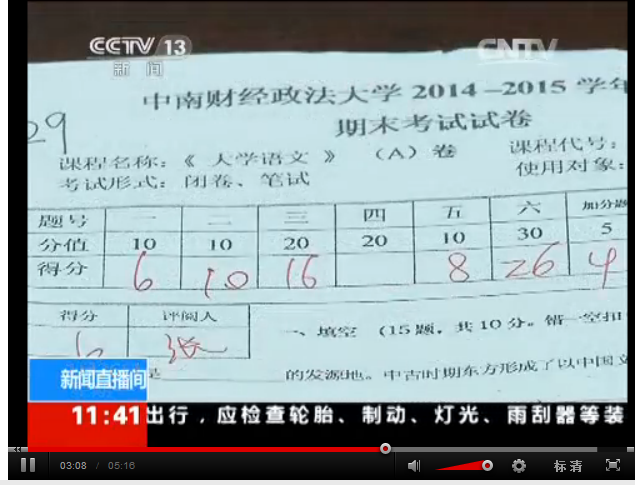 CCTV 13
新闻
CNTV
中南财经政法大学 2014–2015 学年
期末考试试卷
29
课程名称：《 大学语文 》 （A）卷 课程代号：
考试形式：闭卷、笔试 使用对象：
题号 一 二 三 四 五 六 加分题
分值 10 10 20 20 10 30 5
得分 6 10 16 8 26 4
得分 评阅人
一、填空 （15题，共10分。错一空扣
6 张
是 的发源地。中古时期东方形成了以中国文
新闻直播间
11:41 出行，应检查轮胎、制动、灯光、雨刮器等装
03:08 / 05:16
标清